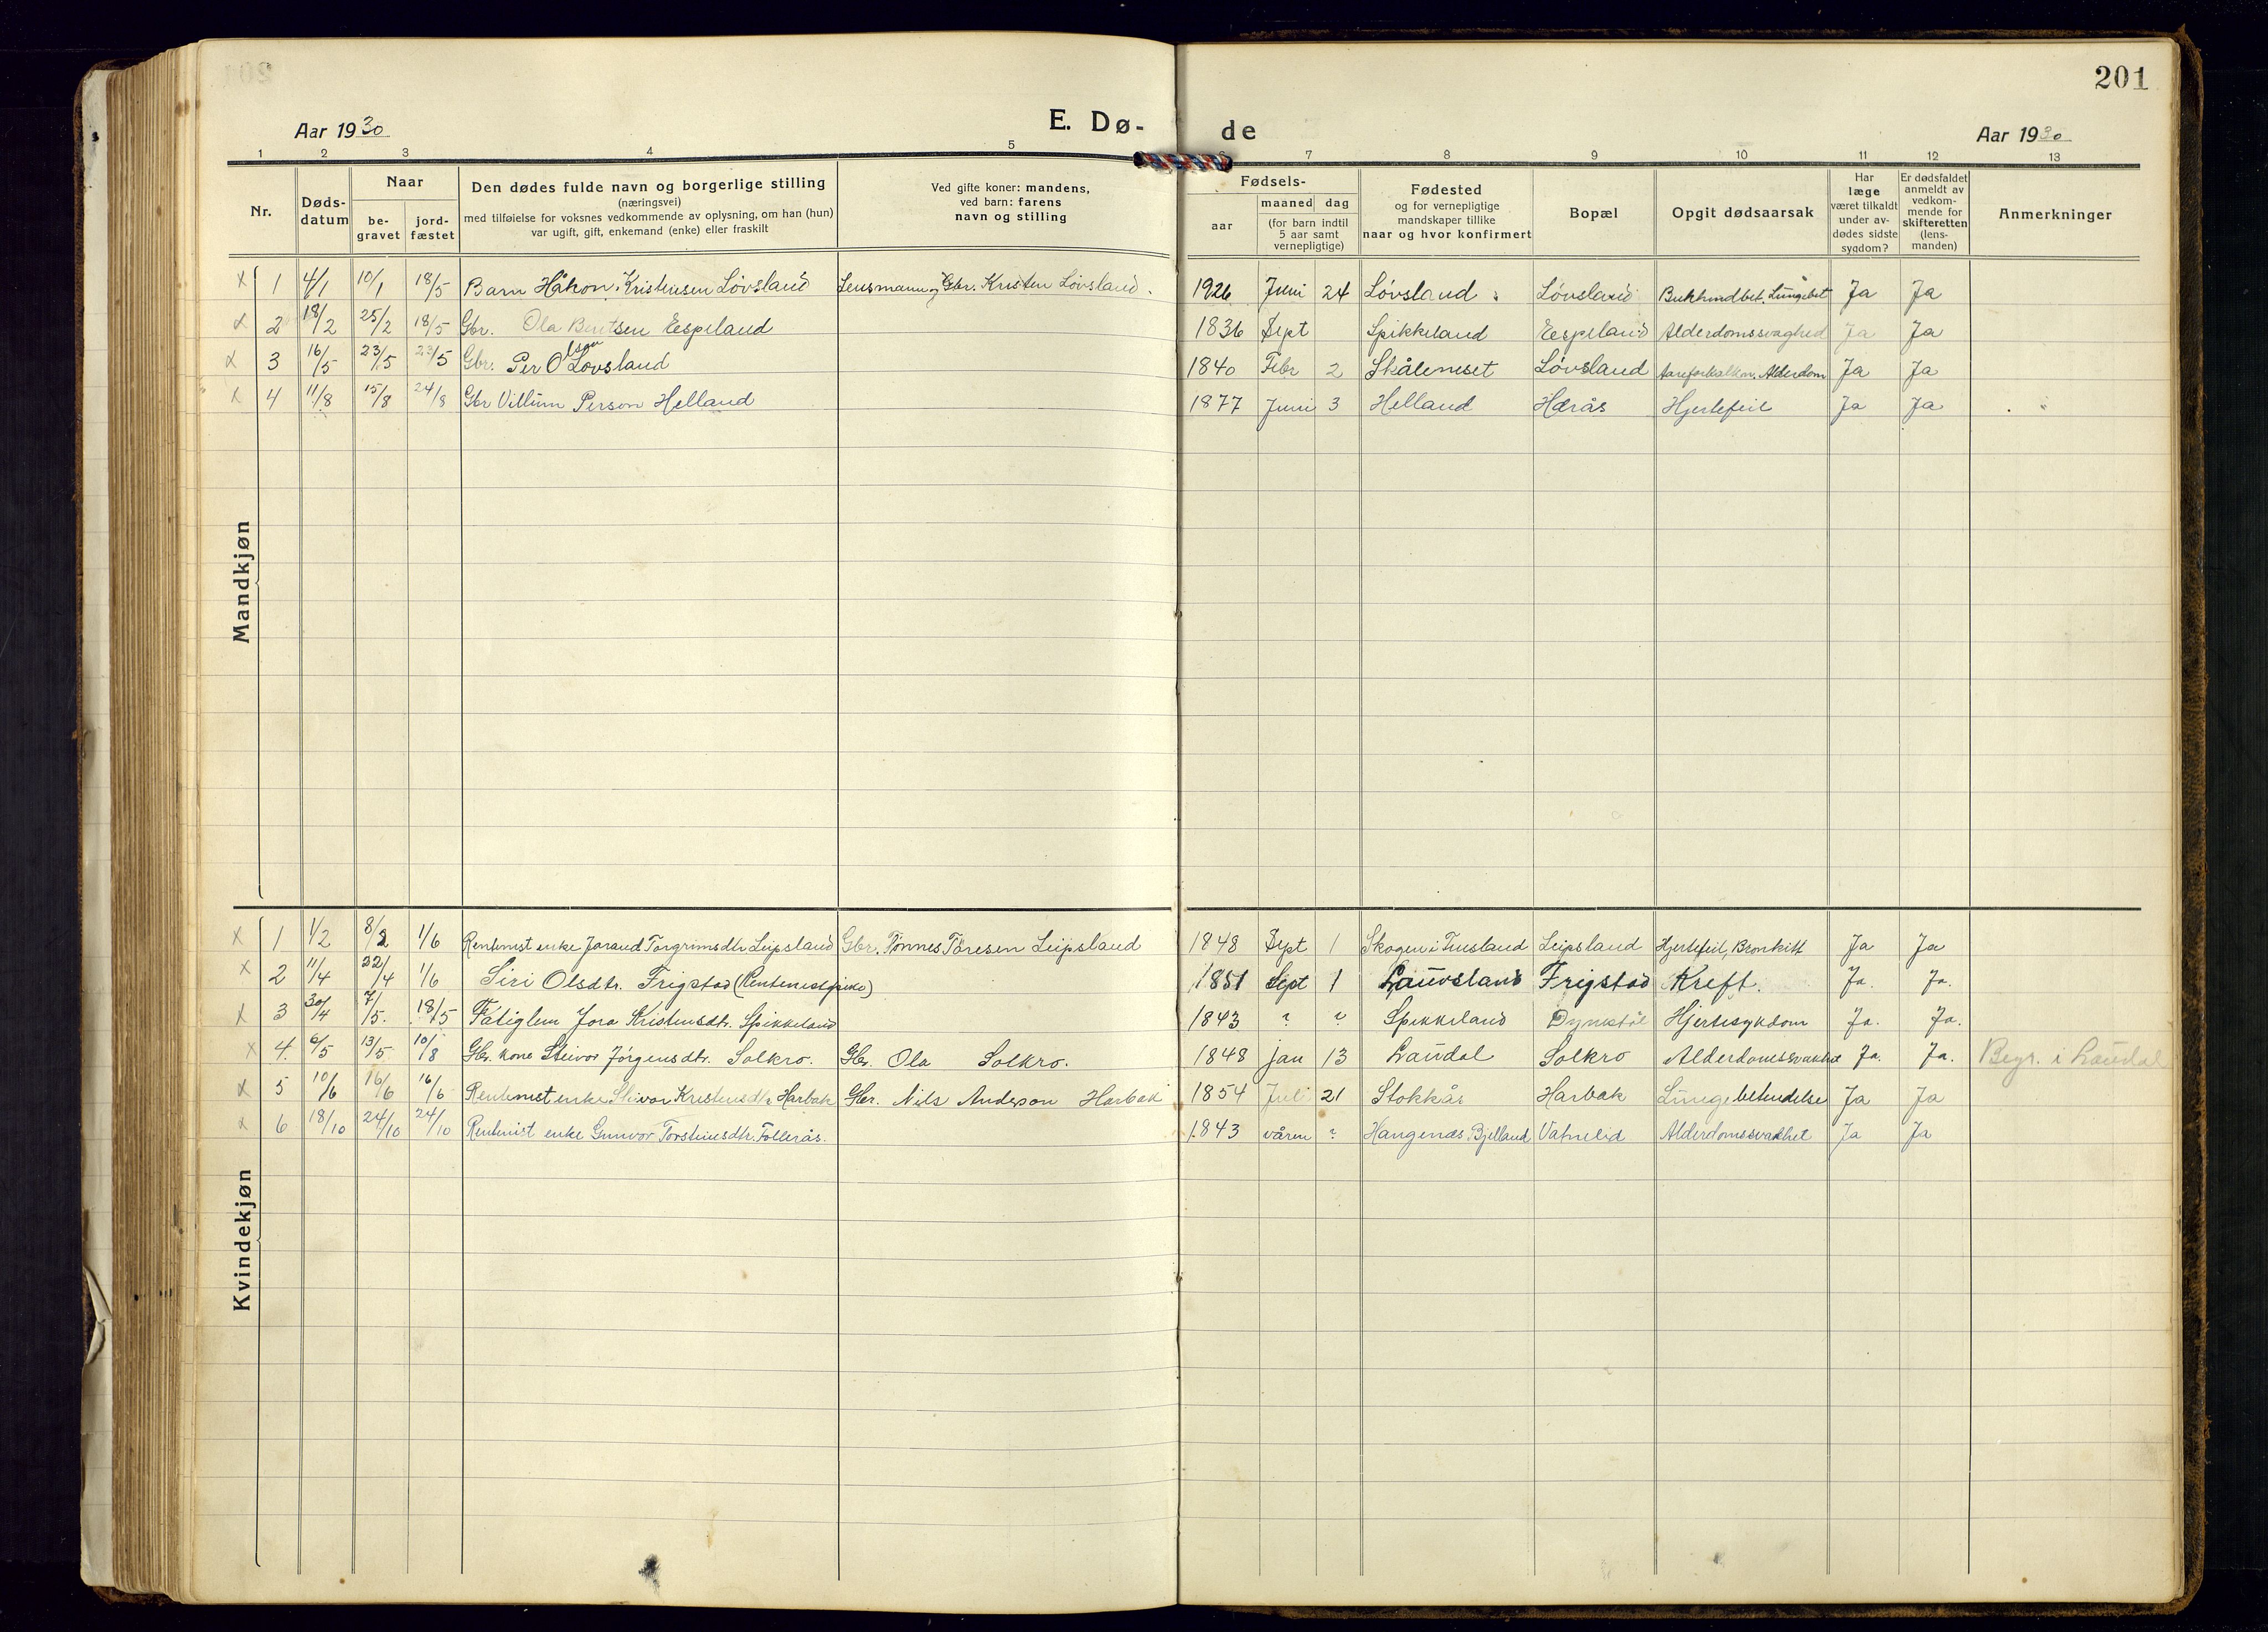 201
Aar 1930 E. Dø- de Aar 1930
1 2 3 4 5 6 7 8 9 10 11 12 13
Nr.
Døds-
datum
Naar
be-
gravet
jord-
fæstet
Den dødes fulde navn og borgerlige stilling
(næringsvei)
med tilføielse for voksnes vedkommende av oplysning, om han (hun)
var ugift, gift, enkemand (enke) eller fraskilt
Ved gifte koner: mandens,
ved barn: farens
navn og stilling
Fødsels-
aar
maaned dag
(for barn indtil
5 aar samt
vernepligtige)
Fødested
og for vernepligtige
mandskaper tillike
naar og hvor konfirmert
Bopæl
Opgit dødsaarsak
Har
læge
været tilkaldt
under av-
dødes sidste
sygdom?
Er dødsfaldet
anmeldt av
vedkom-
mende for
skifteretten
(lens-
manden)
Anmerkninger
Mandkjøn
x 1 4/1 10/1 18/5 Barn Håkon Kristensen Løvsland Lensmann og Gbr. Kristen Løvsland. 1926 Juni 24 Løvsland Løvsland Lungebet Ja Ja
x 2 18/2 25/2 18/5 Gbr. Ola Bentsen Eespeland 1836 Sept Spikkeland Eespeland Alderdomssvaghed Ja Ja
x 3 16/5 23/5 23/5 Gbr. Per Olson Løvsland 1840 Febr 2 Skåleneset Løvsland Aareforkalkn. Alderdom Ja Ja
x 4 11/8 15/8 24/8 Gbr Villum Person Helland 1877 Juni 3 Helland Hærås Hjertefeil Ja Ja
Kvindekjøn
x 1 1/2 8/2 1/6 Rentenist enke Joraud Torgrimsdtr Leipsland Gbr. Tønnes Toresen Leipsland 1848 Sept 1 Skogen i Leipsland Hjertefeil, Bronkitt Ja Ja
x 2 11/4 22/4 1/6 Siri Olsdtr. Frigstad (Rentenist pike) 1851 Sept 1 Lauvsland Frigstad Kreft. Ja. Ja.
x 3 30/4 7/5. 18/5 Fatiglem Jora Kristensdtr. Spikkeland 1843 ? ? Spikkeland Dynestøl Hjertesykdom Ja. Ja.
x 4. 6/5 13/5 10/8 Gbr. kone Steivor Jørgensdtr. Solkro. Gbr. Ola Solkro. 1848 jan 13 Laudal Solkro Alderdomssvakhet Ja. Ja. Begr. i Laudal
x 5 10/6 16/6 16/6 Rentenist enke Steivor Kristensdtr Harbak Gbr. Nils Anderson Harbak 1854 Juli 21 Stokkås Harbak Lungebetendelse Ja Ja
x 6 18/10 24/10 24/10 Rentenist enke Gunvor Torsteinsdtr. Follerås. 1843 våren ? Hangenæs Bjelland Vatnelid Alderdomssvakhet Ja Ja